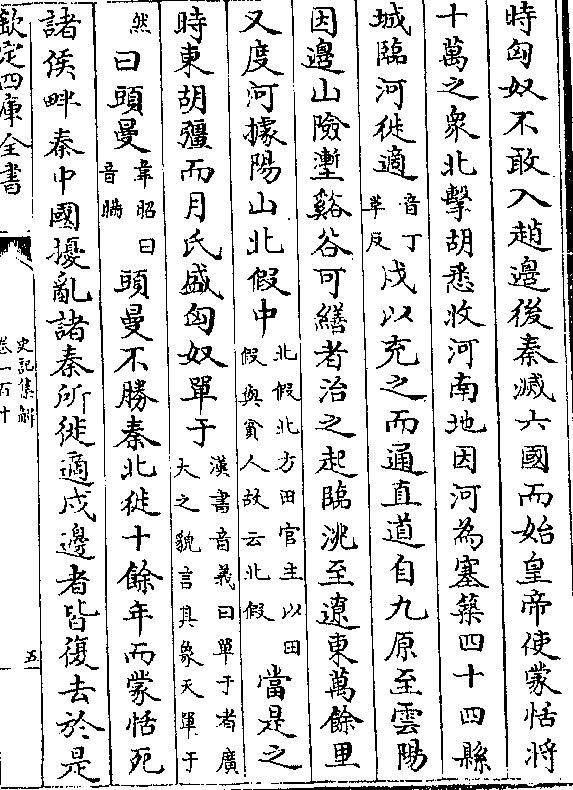 時匈奴不敢入趙邊後秦滅六國而始皇帝使蒙恬將
十萬之衆北擊胡悉收河南地因河為塞築四十四縣
城臨河徙適音丁革反戍以充之而通直道自九原至雲陽
因邊山險壍谿谷可繕者治之起臨洮至遼東萬餘里
又度河據陽山北假中北假北方田官主以田假與貧人故云北假當是之
時東胡彊而月氏盛匈奴單于漢書音義曰單于者廣大之貌言其象天單于
然曰頭曼韋昭曰音瞞頭曼不勝秦北徙十餘年而蒙恬死
諸侯畔秦中國擾亂諸秦所徙適戍邊者皆復去於是
欽定四庫全書
史記集解
卷一百十
五